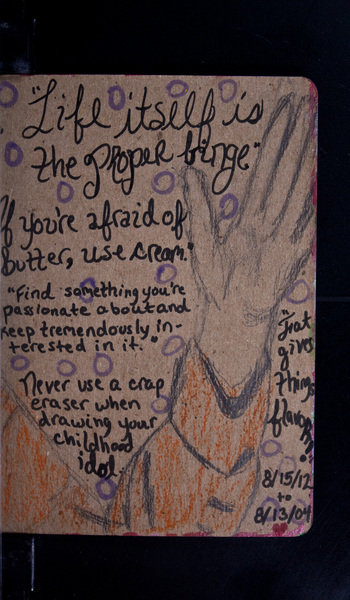 "Life itself is
the proper binge"
If you're afraid of
butter, use cream."
"Find something you're
passionate about and
keep tremendously in-
terested in it."
Never use a crap
eraser when
drawing your
childhood
idol.
"Fat
gives
things
flavor"
8/15/12
to
8/13/04